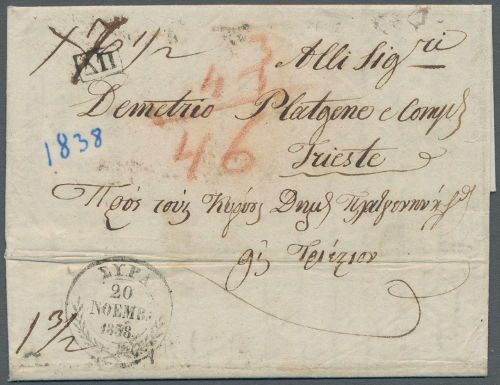 7 1/2
XII
Alli Sig.ri
Demetrio Platgene e Comp.
Trieste
43
46
1838
Πρὸς τοὺς Κυρίους
εἰς Τριέστιον
ΣΥΡΑ
20
ΝΟΕΜΒ.
1838
1 3/2